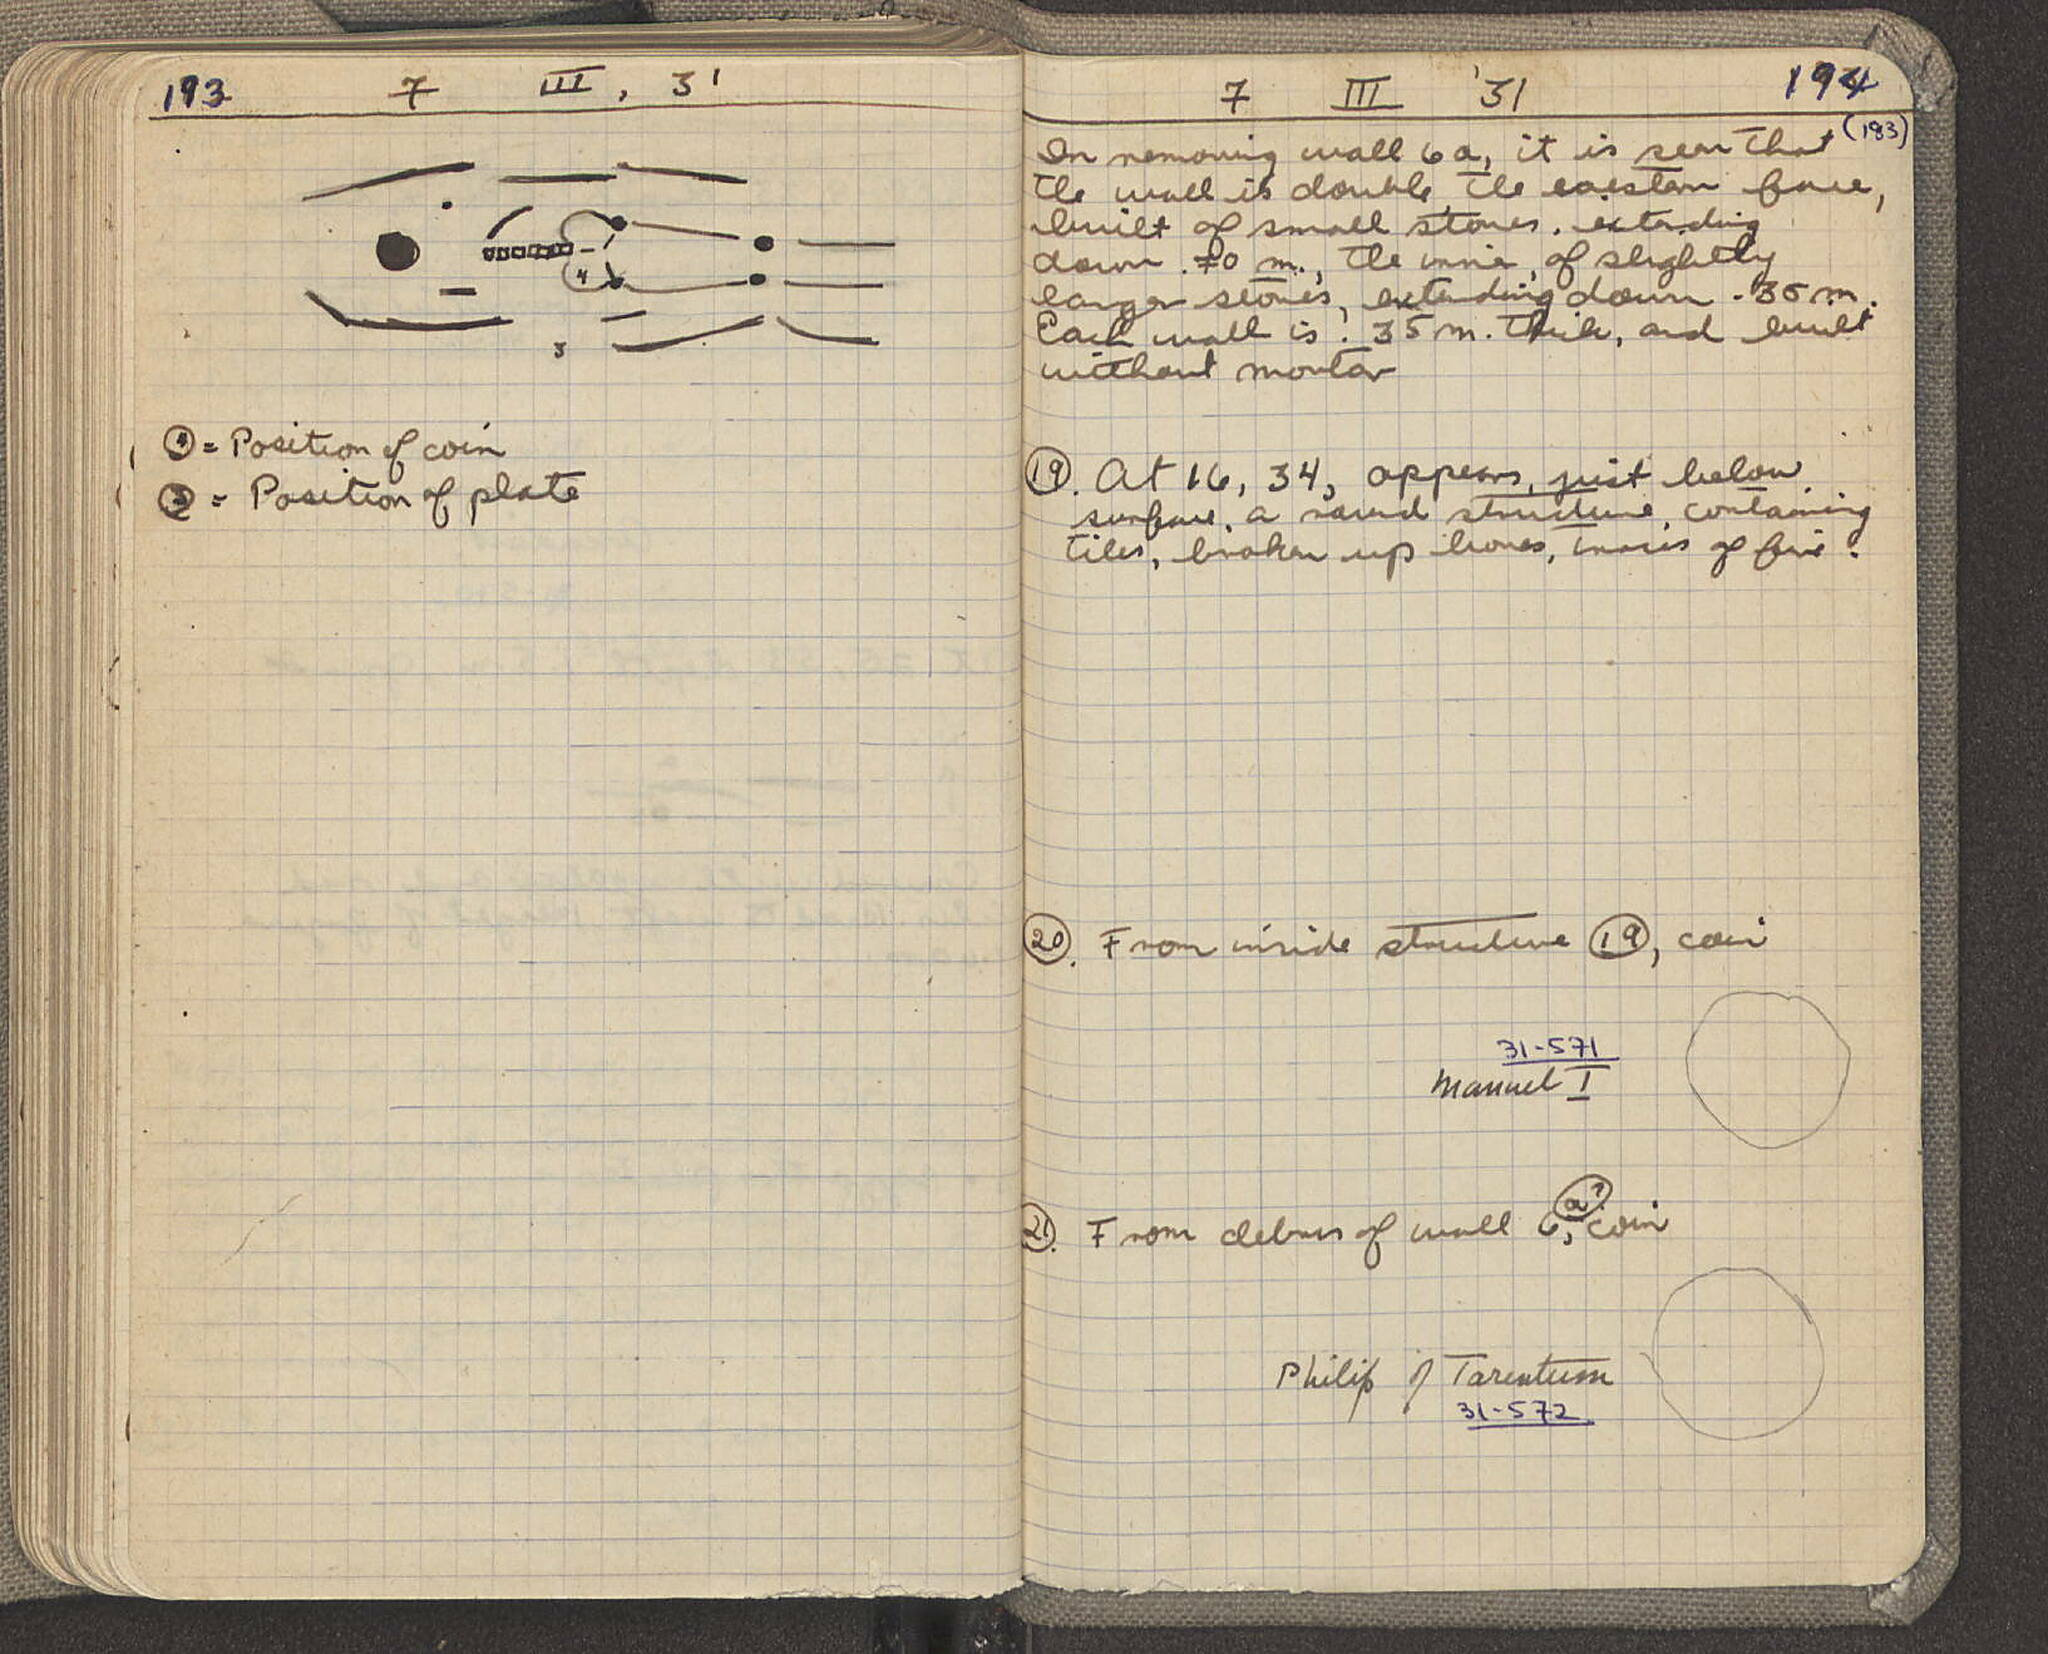 193 7 III, 31
4
3
④ = Position of coin
③ = Position of plate
7 III '31 194
(183)
In removing wall 6a, it is seen that
the wall is double, the eastern face,
built of small stones, extending
down .70 m., the inner, of slightly
larger stones, extending down .35 m.
Each wall is .35 m. thick, and built
without mortar
⑲. At 16, 34, appears, just below
surface, a round structure, containing
tiles, broken up bones, traces of fire.
⑳. From inside structure ⑲, coin
31-571
Manuel I
㉑. From debris of wall 6a?, coin
Philip of Tarentum
31-572